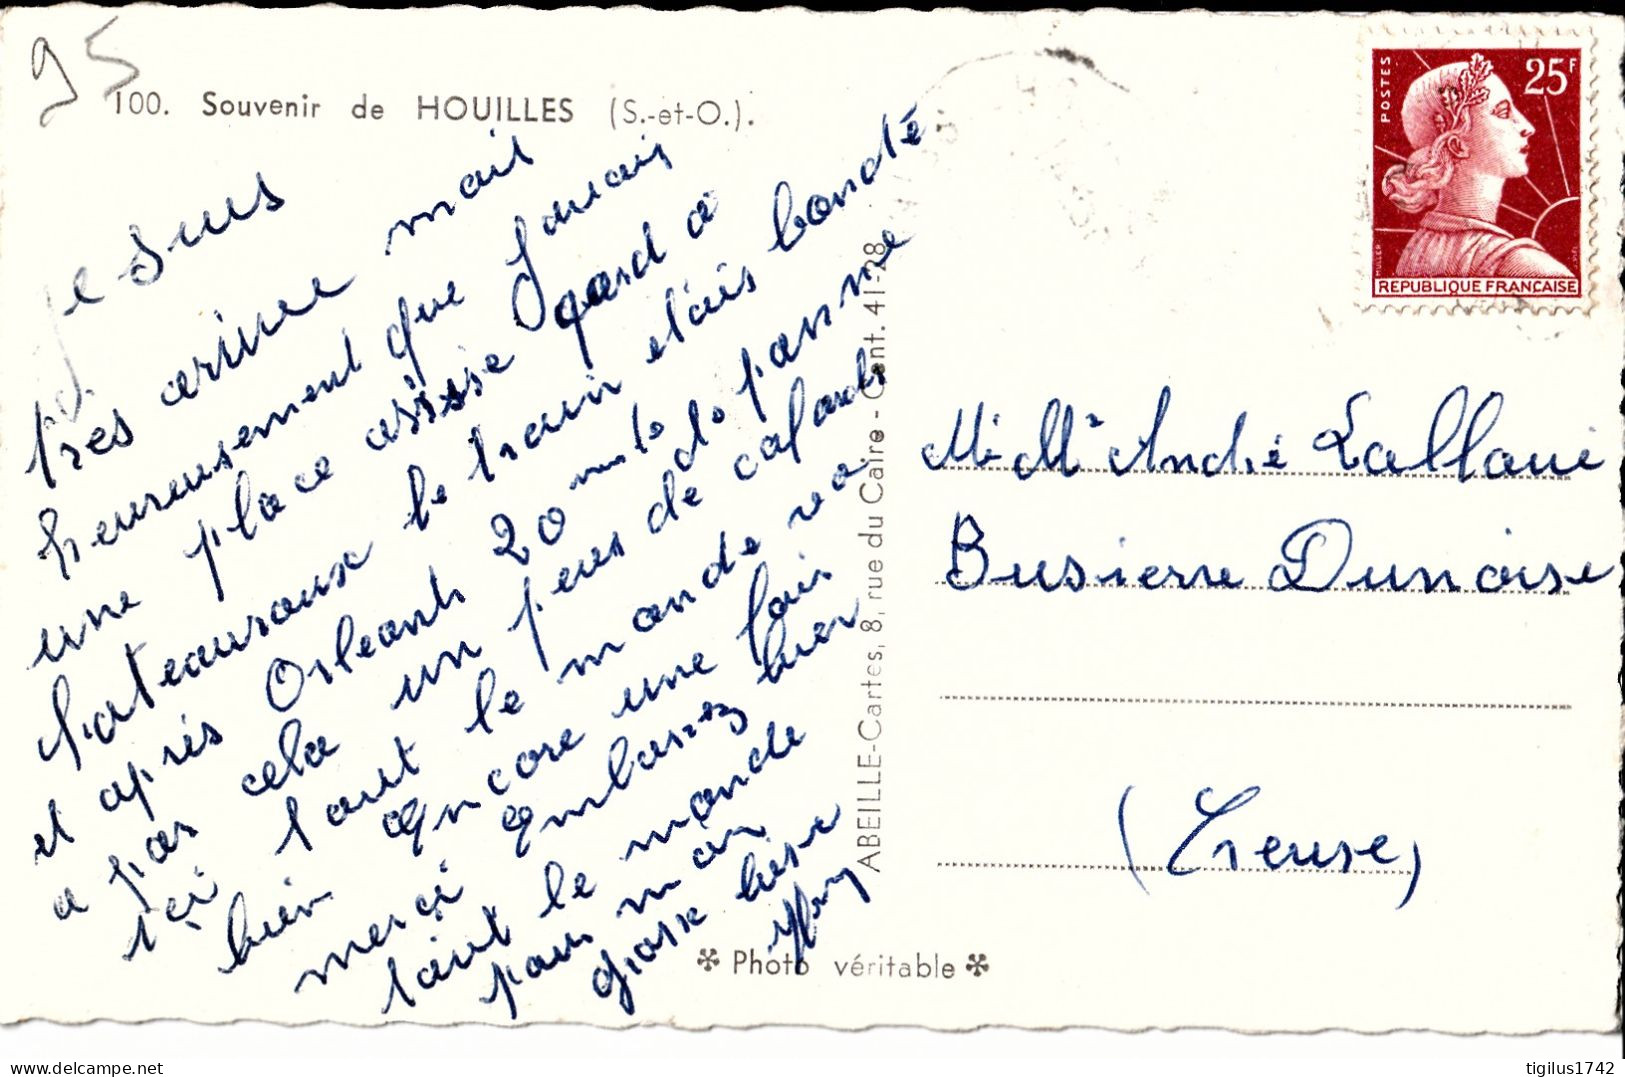 95
100. Souvenir de HOUILLES (S.-et-O.).
25F
POSTES
MULLER
REPUBLIQUE FRANÇAISE
je suis
très arivée mait
heureusement que Javais
une place assise quard à
chateauroux le train etais bondé
et après Orleants 20 mnts de panne
a par cela un peus de cafards
ici tout le monde va
bien encore une fois
merci embrassez bien
tout le monde
pour moi
grosse bise
M. Mᵉ André Lallani
Busierre Dunoise
(Creuse)
ABEILLE-Cartes, 8, rue du Caire - Cent. 41-28
✻ Photo véritable ✻
delcampe.net
tigilus1742